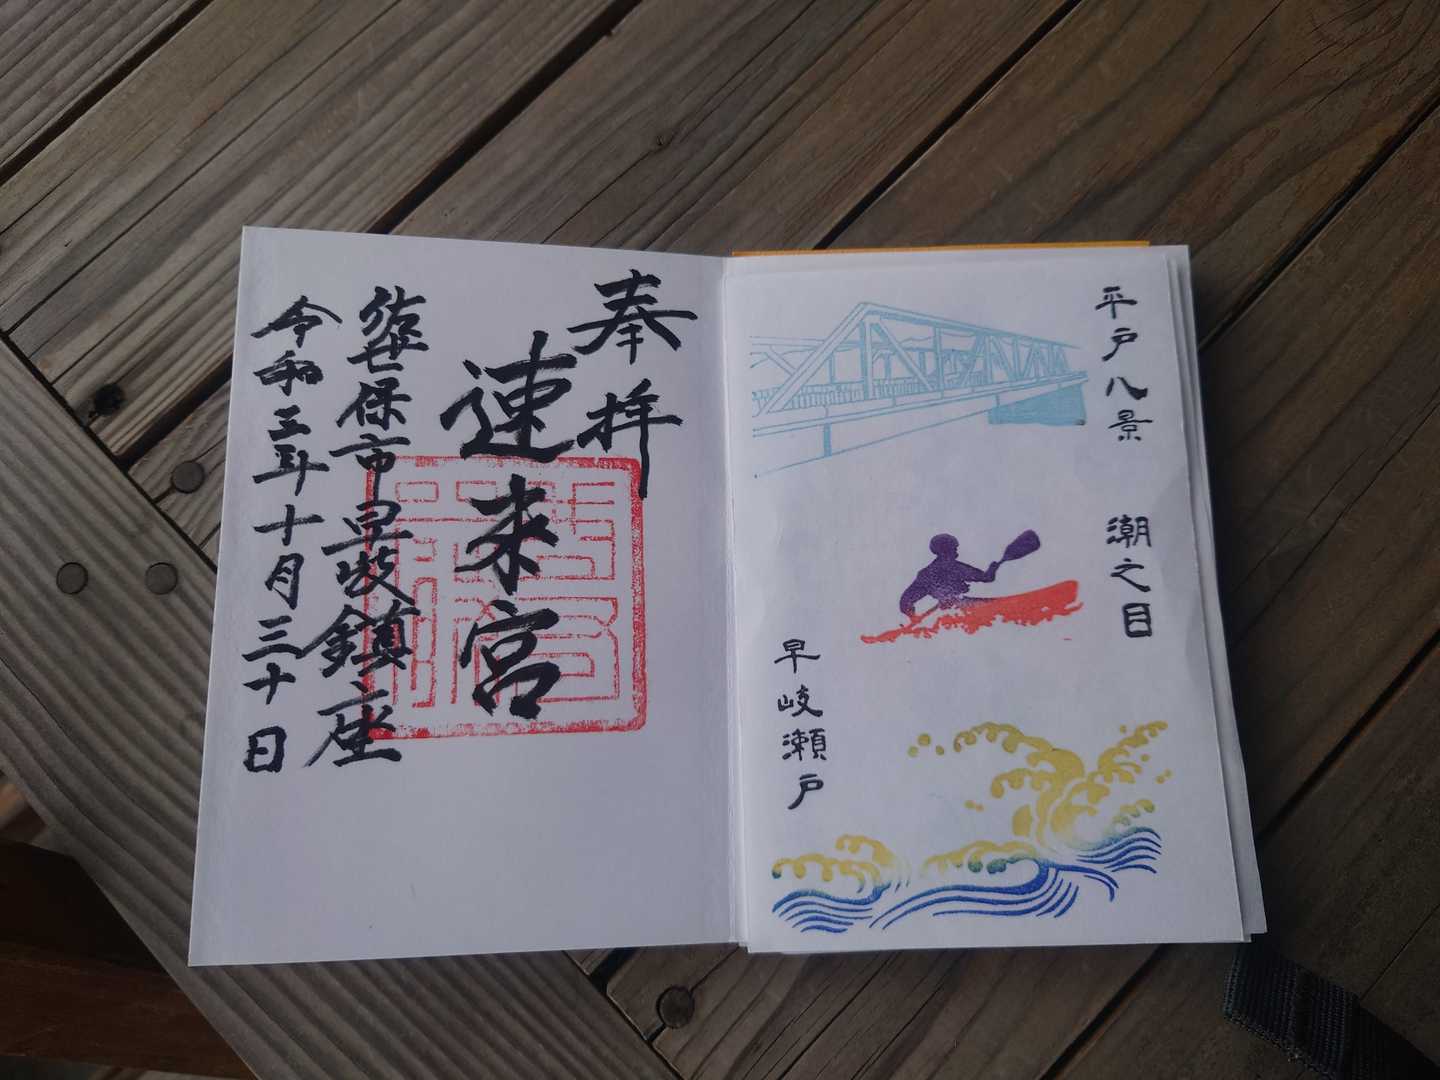 平戸八景 潮之目
早岐瀬戸
奉拝
速来宮
佐世保市早岐鎮座
令和三年十月三十日